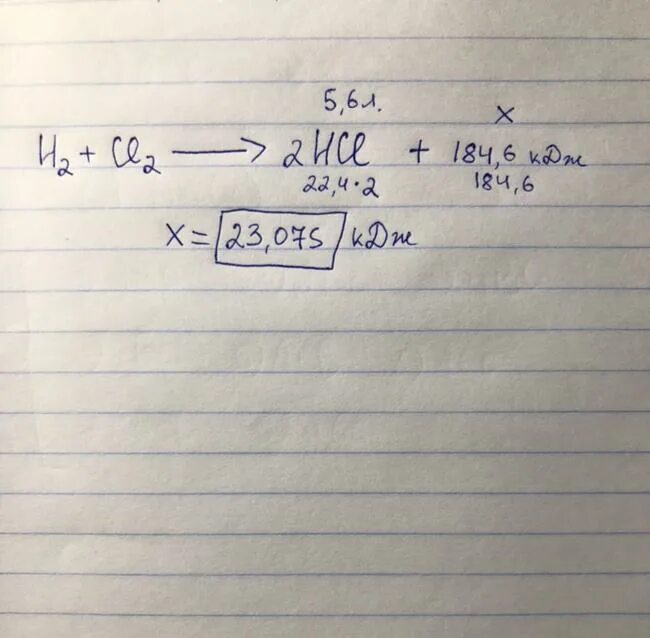 5,6л. x
H₂ + Cl₂ ⟶ 2HCl + 184,6 кДж
22,4·2 184,6
x = 23,075 кДж